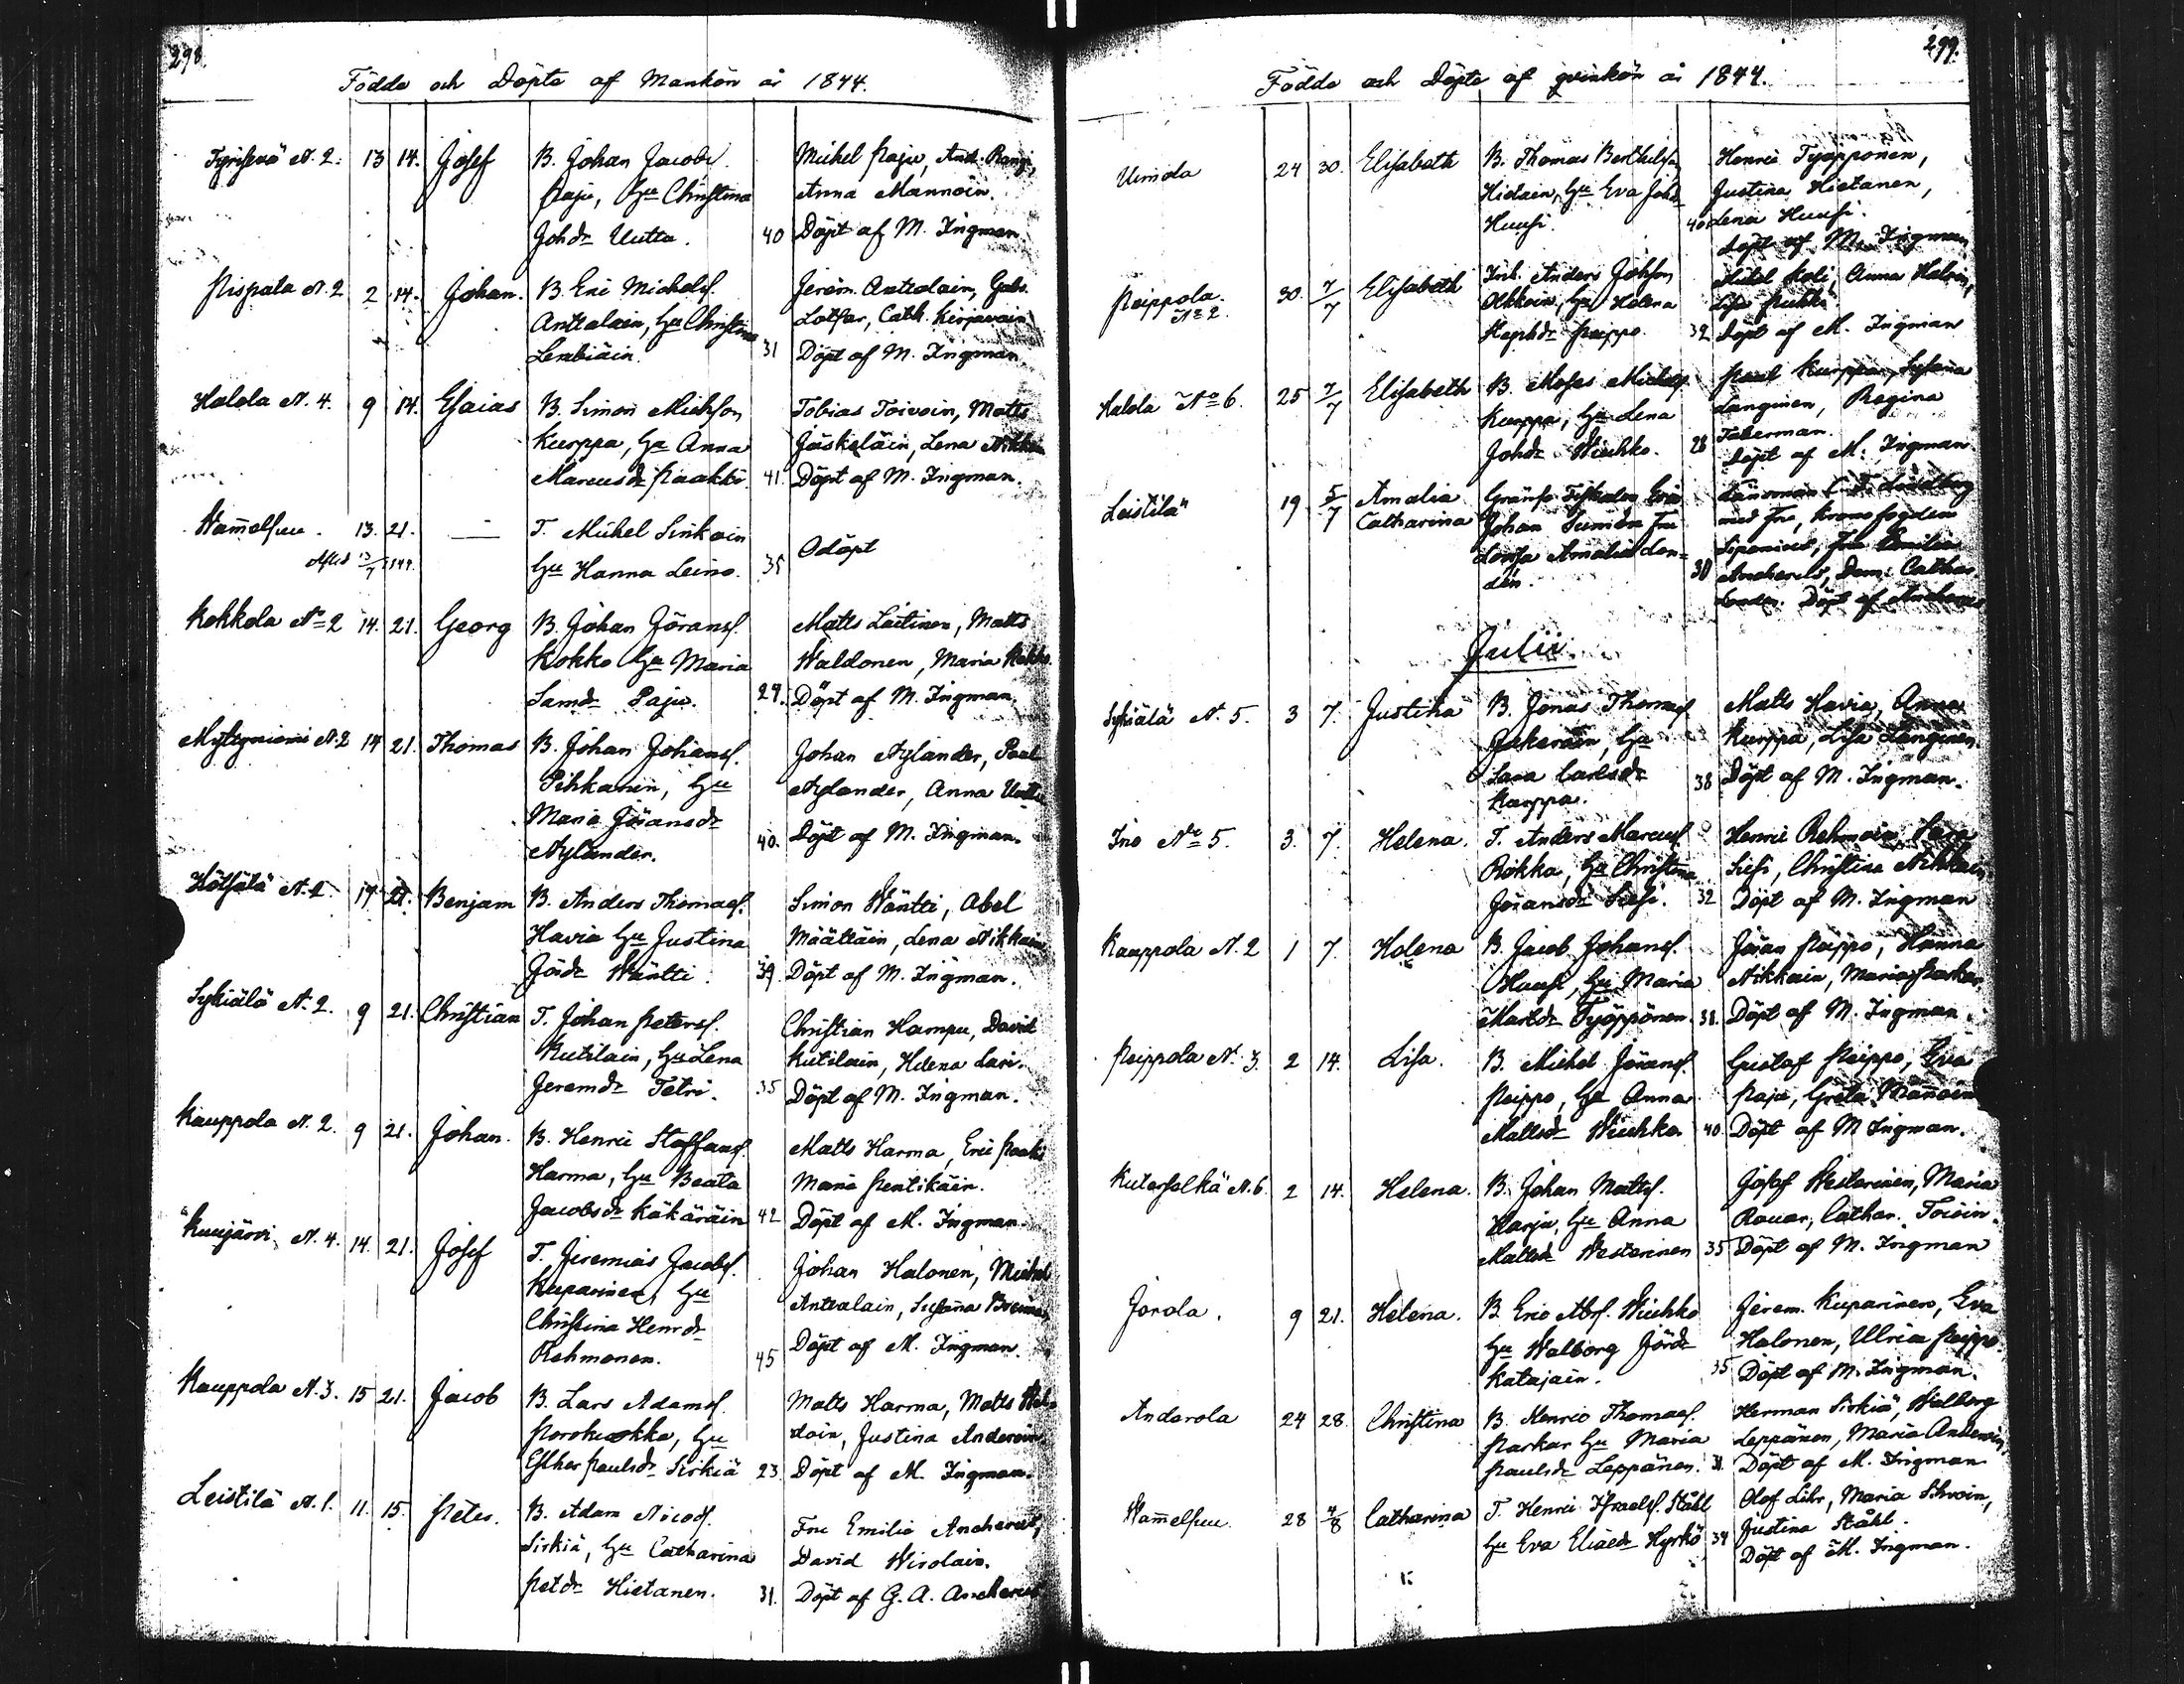 298.
Födde och Döpte af Mankön år 1844.
Tyrisevä N. 2. 13 14. Josef B. Johan Jacobs. Michel Paju, And. Rangi,
Paju, Hu Christina Anna Mannoin.
Johdr Uutta. 40 Döpt af M. Ingman.
Pispala N. 2 2 14. Johan. B. Eric Michels. Jerem. Antalain, Gabr.
Anttalain, Hu Christina Lotfar, Cath. Kirjavain
Lembiäin. 31 Döpt af M. Ingman.
Halola N. 4. 9 14. Esaias B. Simon Michson Tobias Toivoin, Matts
Kurppa, Hu Anna Jäskeläin, Lena Nikkain
Marcusdr Paakki. 41. Döpt af M. Ingman.
Wam̄elsuu. 13. 21. — T. Michel Sinkoin Odöpt
Afled 13/7 1844. Hu Hanna Leino. 35
Kokkola No 2 14. 21. Georg B. Johan Jörans. Matts Laitinen, Matts
Kokko Hu Maria Waldonen, Maria Kokko.
Samdr Paju. 29. Döpt af M. Ingman.
N. 2 14 21. Thomas B. Johan Johans. Johan Nylander, Paul
Pihkanen, Hu Nylander, Anna Uutta
Maria Jöransdr
Nylander. 40. Döpt af M. Ingman.
Hötsölä N. 2. 17 21. Benjam B. Anders Thomas. Simon Wäntti, Abel
Havia Hu Justina Määttäin, Lena Nikkain
Jördr Wäntti. 39. Döpt af M. Ingman.
Sykiälä N. 2. 9 21. Christian T. Johan Peters. Christian Hampu, David
Kutilain, Hu Lena Kutilain, Helena Lari.
Jeremdr Tetri. 35 Döpt af M. Ingman.
Kauppola N. 2. 9 21. Johan. B. Henric Staffans. Matts Harma, Eric Paaki
Harma, Hu Beata Maria Pentikäin.
Jacobsdr Käkäräin 42 Döpt af M. Ingman.
Kuujärvi N. 4. 14. 21. Josef T. Jeremias Jacobs. Johan Halonen, Michel
Kuparinen, Hu Antvalain, Susanna
Christina Henrdr
Rehmonen. 45 Döpt af M. Ingman.
Kauppola N. 3. 15 21. Jacob B. Lars Adams. Matts Harma, Matts
Porokuokka, Hu Justina Anderoin.
Esther Paulsdr Sirkiä 23. Döpt af M. Ingman.
Leistilä N. 1. 11. 15. Peter. B. Adam Nicod. Fru Emilia Ancherus,
Sirkiä, Hu Catharina David Wirolain.
Petdr Hietanen. 31. Döpt af G. A. Ancherus
299.
Födde och Döpte af qvinkön år 1844.
Uimola 24 30. Elisabeth B. Thomas Berthelsn Henric Tyäpponen,
Hietain, Hu Eva Johdr Justina Hietanen,
Huusi. 40 Lena Huusi.
Döpt af M. Ingman
Peippola. No 2. 30. 7/7 Elisabeth Inh. Anders Johson Michel Koli, Anna
Olkkoin, Hu Helena Lisa Puhki
Stephdr Peippo. 32 Döpt af M. Ingman
Halola No 6. 25 7/7 Elisabeth B. Moses Michels. Paul Kurppa, Susanna
Kurppa, Hu Lena Langinen, Regina
Johdr Wiuhko. 28 Taberman.
Döpt af M. Ingman
Leistilä 19 5/7 Amalia Gräns Fiskalen Eric Länsman
Catharina Johan Fru med Fru, Kronofogden
Lovisa Amalia Lon- Fru Emilia
dén. 30 Ancherus, Dem. Cathar.
Londen. Döpt af Ancherus
Julii.
Sykiälä N. 5. 3 7. Justina B. Jonas Thomas. Matts Havia, Anna
Jakerain, Hu Kurppa, Lisa Langinen.
Sara Carlsdr 38 Döpt af M. Ingman.
Kurppa.
Ino No 5. 3. 7. Helena. T. Anders Marcus. Henric Rehmoin, Sara
Rokka, Hu Christina Susi, Christina Nikkain
Jöransdr Susi. 32 Döpt af M. Ingman
Kauppola N. 2 1 7. Helena B. Jacob Johans. Jöran Peippo, Hanna
Huusi, Hu Maria Nikkain, Maria Parkar.
Martdr Tyäppönen. 38. Döpt af M. Ingman.
Peippola N. 3. 2 14. Lisa. B. Michel Jörans. Gustaf Peippo, Eva
Peippo, Hu Anna Paju, Greta Mannoin
Mattsdr Wiuhko 40 Döpt af M. Ingman.
Kuterselkä N. 6. 2 14. Helena. B. Johan Matts. Josef Westerinen, Maria
Harju, Hu Anna Rouar, Cathar. Toivoin.
Mattsdr Westerinen 35 Döpt af M. Ingman
Jorola. 9 21. Helena. B. Eric Abrs. Wiuhko Jerem. Kuparinen, Eva
Hu Walborg Jördr Halonen, Ulrica Peippo.
Katajain. 35 Döpt af M. Ingman.
Anderola 24 28. Christina B. Henric Thomas. Herman Sirkiä, Walborg
Parkar Hu Maria Leppänen, Maria Anderoin,
Paulsdr Leppänen. 31. Döpt af M. Ingman
Wam̄elsuu. 28 4/8 Catharina T. Henric Israels. Ståhl Olof Lihr, Maria Ihvoin,
Hu Eva Eliædr Hyrkö 34 Justina Ståhl.
Döpt af M. Ingman.